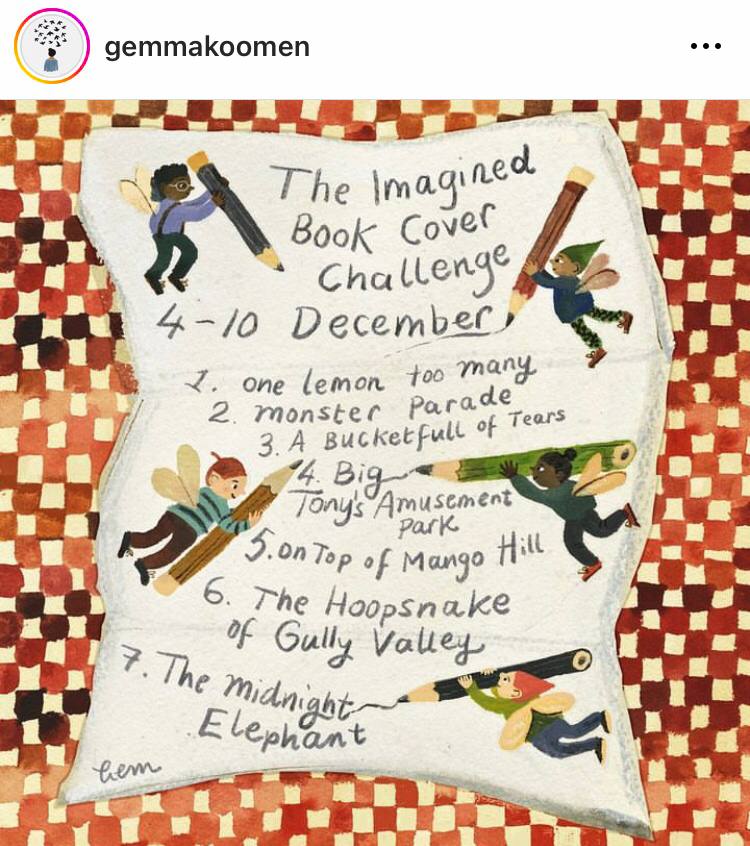 gemmakoomen
The Imagined
Book Cover
Challenge
4-10 December
1. one lemon too many
2. monster Parade
3. A Bucketfull of Tears
4. Big
Tony's Amusement
Park
5. on Top of Mango Hill
6. The Hoopsnake
of Gully Valley
7. The midnight
Elephant
Gem